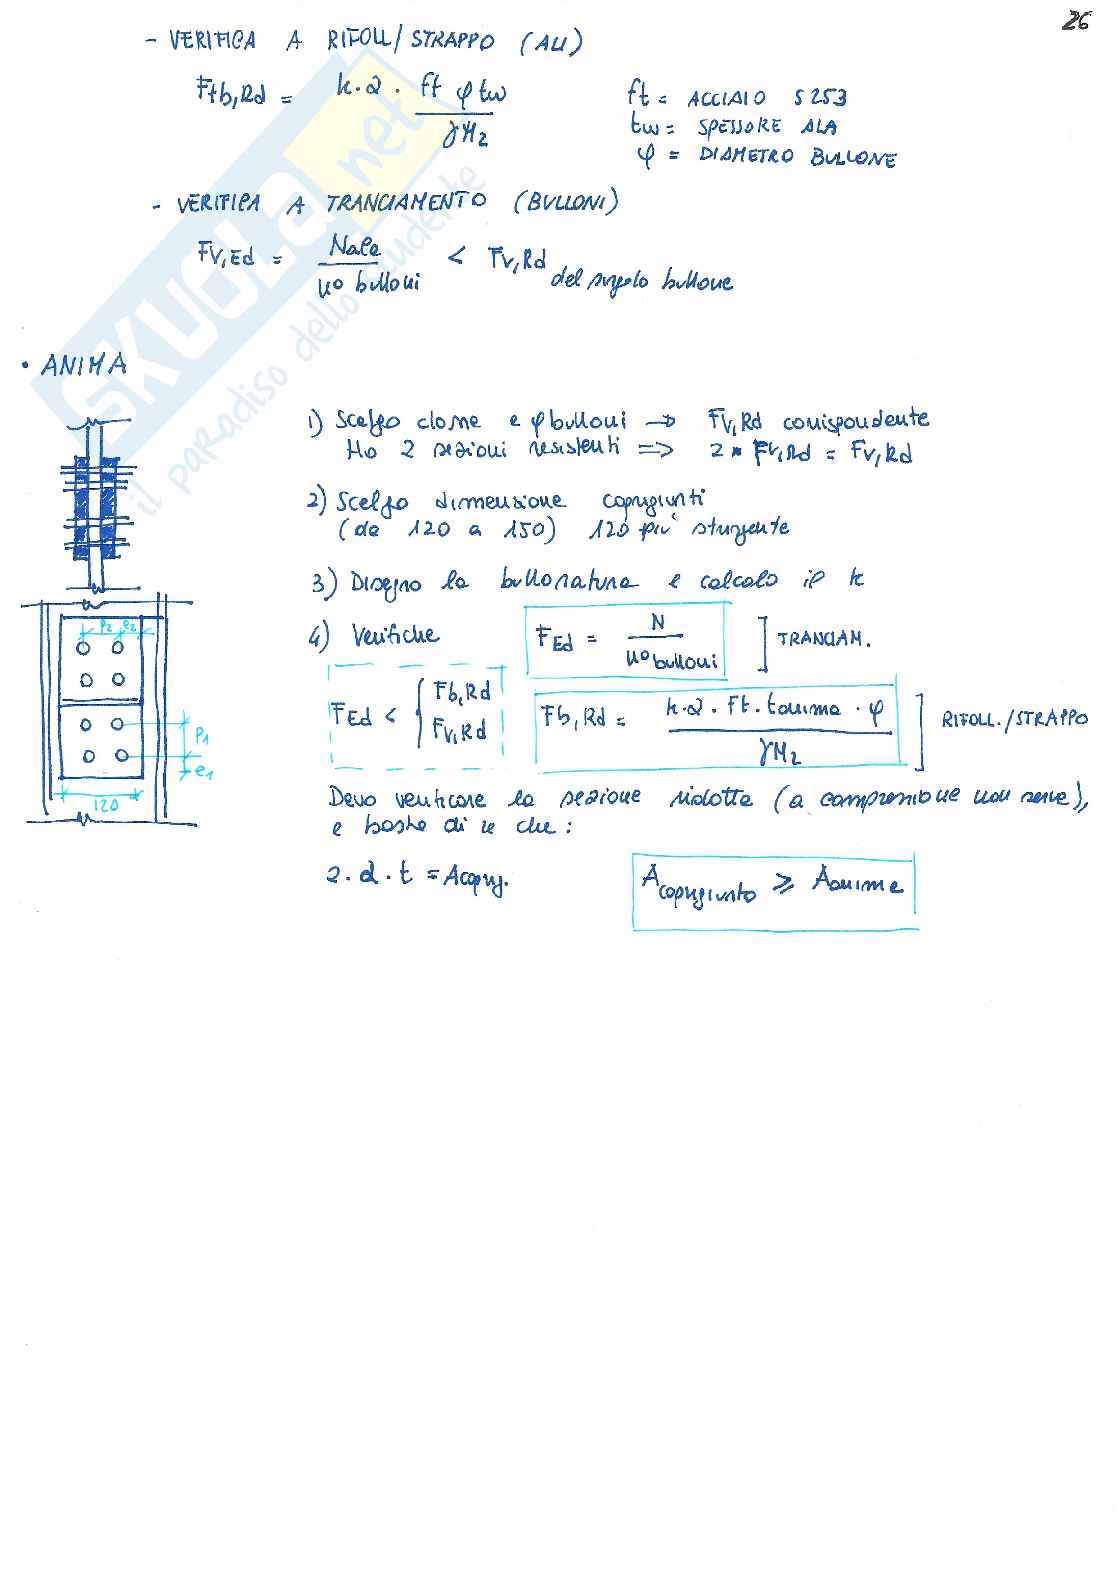 26
- VERIFICA A RIFOLL/STRAPPO (ALI)
Ftb,Rd = k·α · ft φ tw / γM2
ft = ACCIAIO S253
tw = SPESSORE ALA
φ = DIAMETRO BULLONE
- VERIFICA A TRANCIAMENTO (BULLONI)
FV,Ed = Nala / n° bulloni < FV,Rd del singolo bullone
• ANIMA
1) Scelgo classe e φ bulloni → FV,Rd corrispondente
Ho 2 sezioni resistenti => 2 * FV,Rd = FV,Rd
2) Scelgo dimensione coprigiunti
(da 120 a 150) 120 più stringente
3) Disegno la bullonatura e calcolo il k
4) Verifiche
FEd = N / n° bulloni ] TRANCIAM.
FEd < { Fb,Rd
FV,Rd
Fb,Rd = k·α · ft · tanima · φ / γM2 ] RIFOLL./STRAPPO
Devo verificare la sezione ridotta (a compressione non serve),
e basta che:
2·d·t = Acoprig.
Acoprigiunto ⩾ Aanima
P2 e2
P1
e1
120
SKUOLA.net
il paradiso dello studente